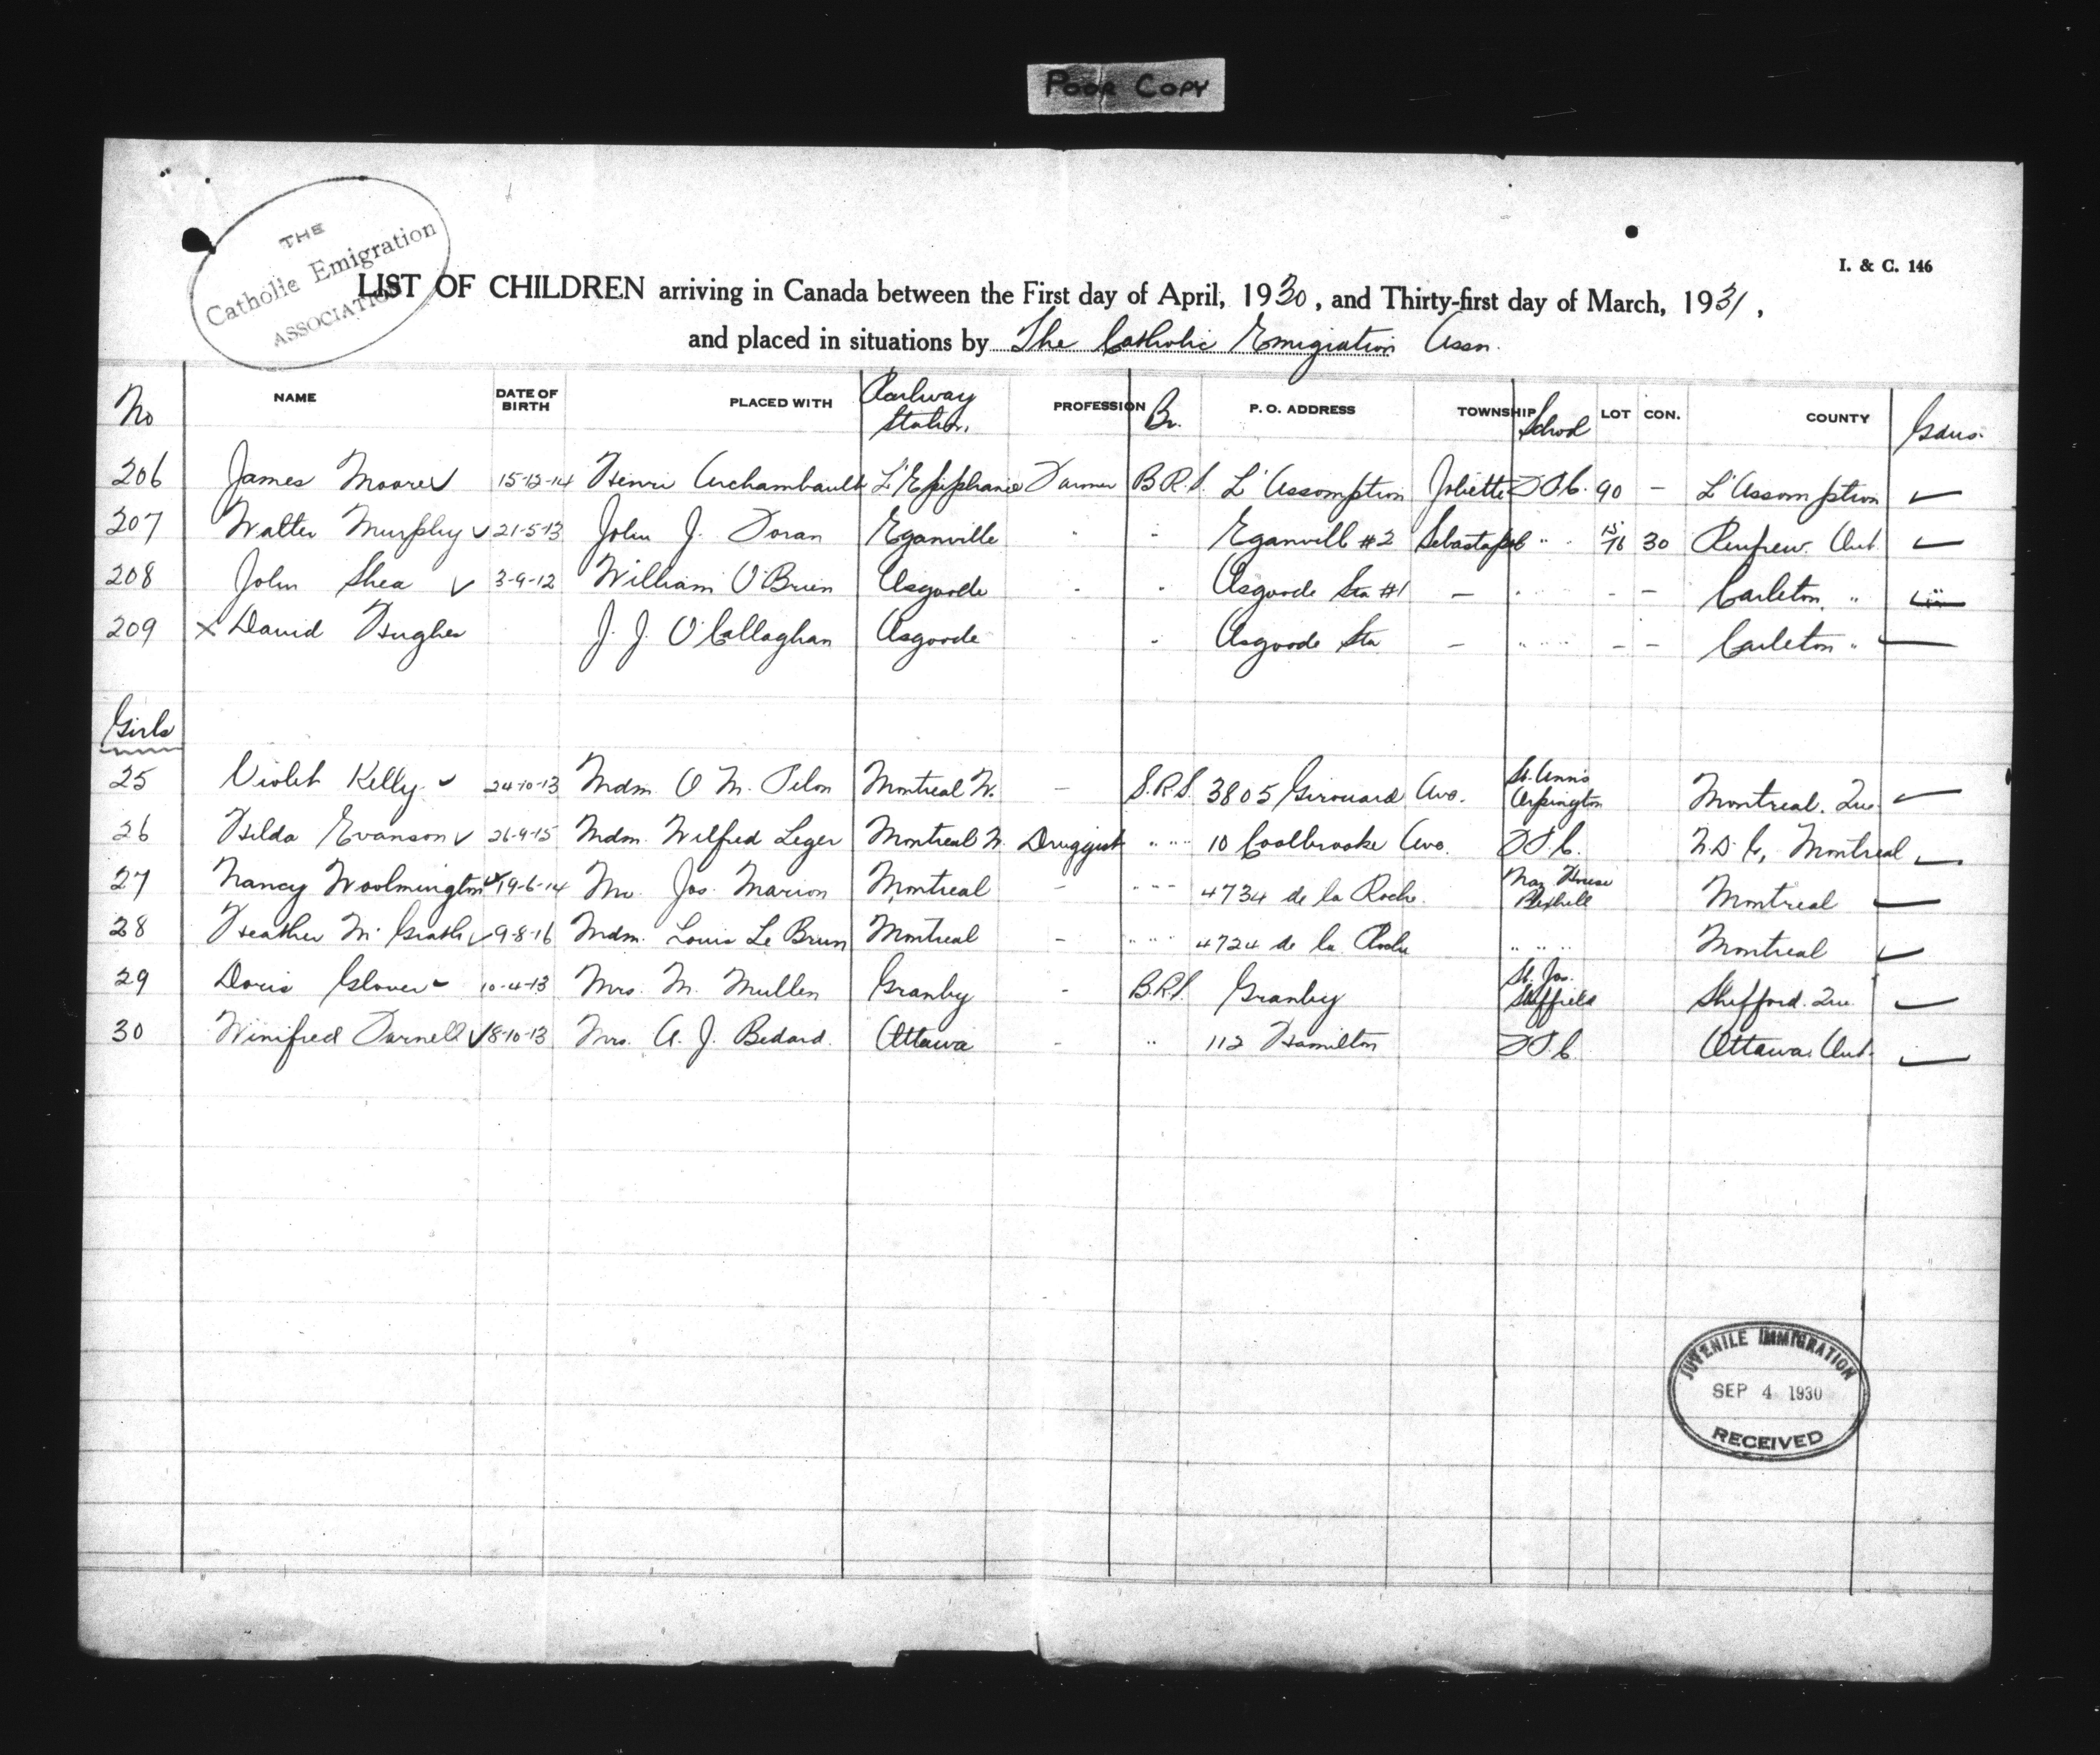 POOR COPY
THE
Catholic Emigration
ASSOCIATION
I. & C. 146
LIST OF CHILDREN arriving in Canada between the First day of April, 1930, and Thirty-first day of March, 1931,
and placed in situations by The Catholic Emigration Assn.
No NAME DATE OF BIRTH PLACED WITH Railway Station PROFESSION Br. P. O. ADDRESS TOWNSHIP School LOT CON. COUNTY
206 James Moore ✓ 15-12-14 Henri Archambault L'Epiphanie Farmer B.R.S. L'Assomption Joliette F.F.C. 90 - L'Assomption ✓
207 Walter Murphy ✓ 21-5-13 John J. Foran Eganville " " Eganvill #2 Sebastapol " " 15/16 30 Renfrew. Ont. ✓
208 John Shea ✓ 3-9-12 William O'Brien Osgoode " " Osgoode Sta #1 - " " - - Carleton, " ✓
209 X David Hughes J. J. O'Callaghan Osgoode " Osgoode Sta - " " - - Carleton " ✓
Girls
25 Violet Kelly ✓ 24-10-13 Mdm. O M. Pelon Montreal W. - S.R.S. 3805 Girouard Ave. St. Ann's Orpington Montreal. Que ✓
26 Hilda Evanson ✓ 26-9-15 Mdm. Wilfred Leger Montreal W. Druggist " " " 10 Coolbrooke Ave. F.F.C. N.D.G, Montreal ✓
27 Nancy Woolmington ✓ 19-6-14 Mr. Jos. Marion Montreal - " " " 4734 de la Roche. Naz. House Bexhill Montreal ✓
28 Heather McGrath ✓ 9-8-16 Mdm. Louis Le Brun Montreal - " " " 4724 de la Roche " " " Montreal ✓
29 Doris Glover ✓ 10-4-13 Mrs. M. Mullen Granby - B.R.S. Granby St. Jos. Sheffield Shefford. Que. ✓
30 Winifred Farnell ✓ 8-10-13 Mrs. A. J. Bedard. Ottawa - " 112 Hamilton F.F.C. Ottawa. Ont. ✓
JUVENILE IMMIGRATION
SEP 4 1930
RECEIVED